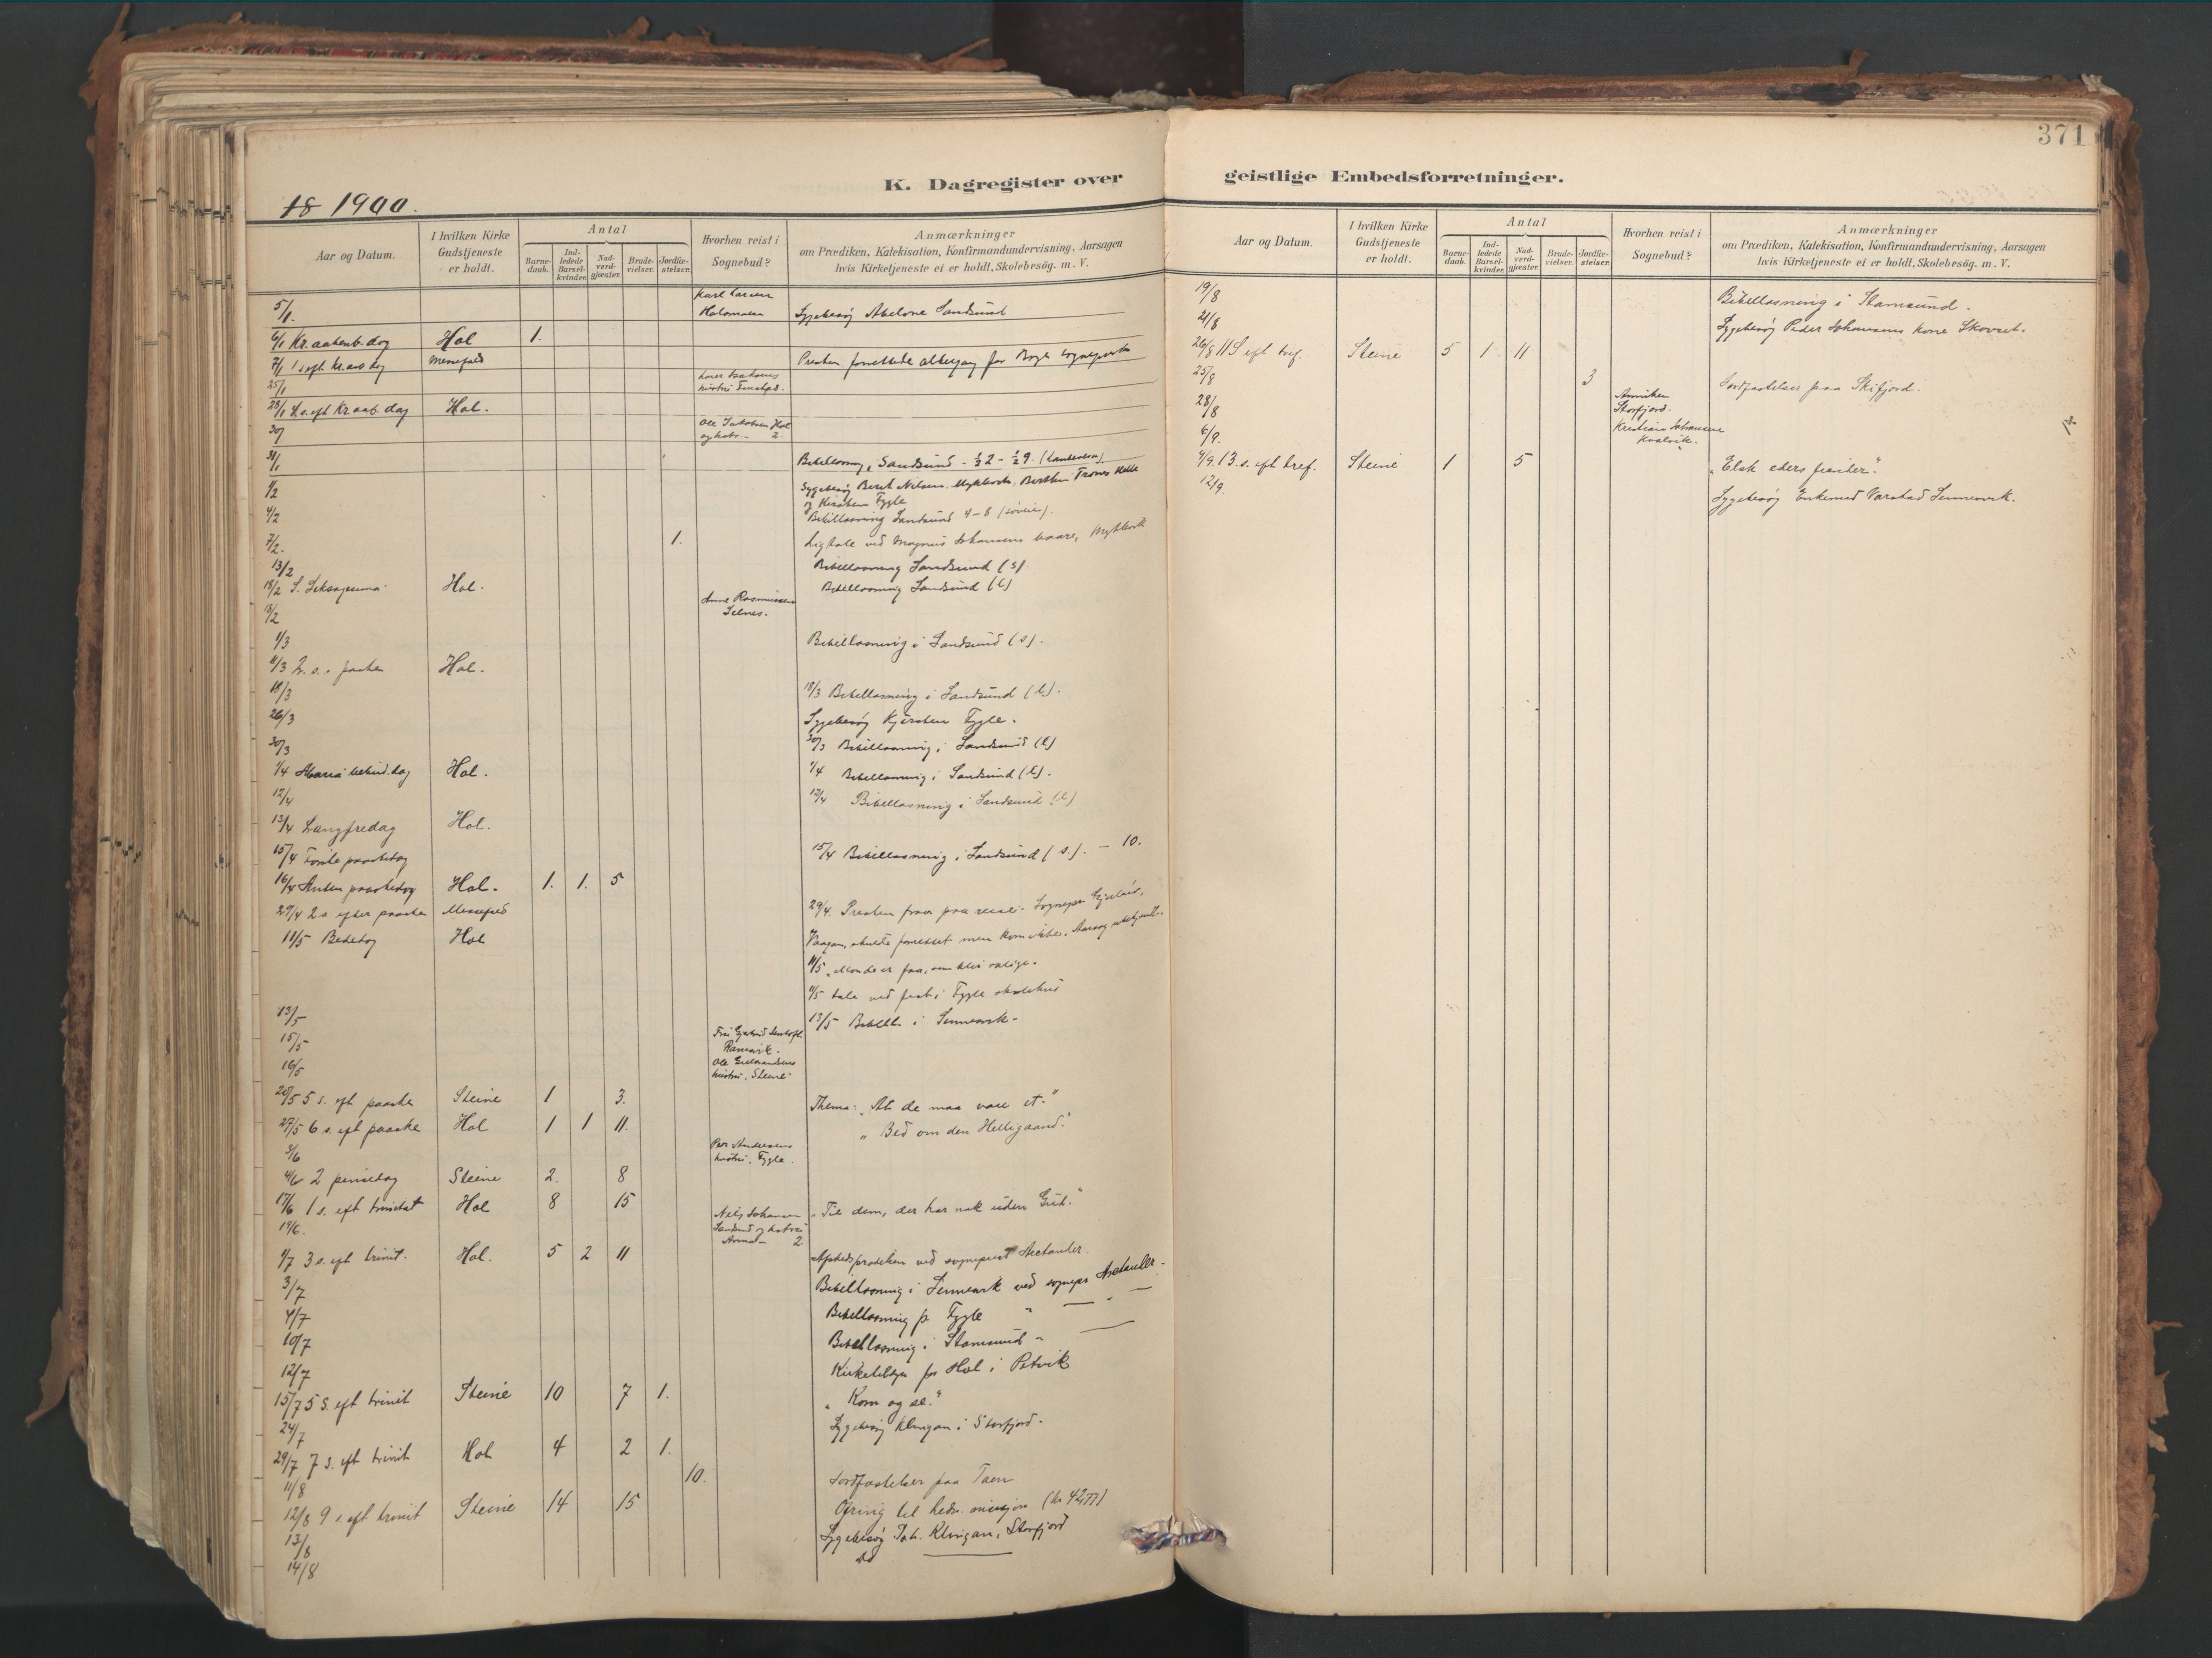 371
K. Dagregister over geistlige Embedsforretninger.
18 1900.
Aar og Datum.
I hvilken Kirke Gudstjeneste er holdt.
Antal
Barne-daab.
Ind-ledede Barsel-kvinder.
Nad-verd-gjæster.
Brude-vielser.
Jordfæ-stelser.
Hvorhen reist i Sognebud?
Anmærkninger
om Prædiken, Katekisation, Konfirmandundervisning, Aarsagen
hvis Kirketjeneste ei er holdt, Skolebesøg. m. V.
5/1. Karl Larsen Sygebesøg Abelone Sandsund
6/1 Kr. aabenb. dag Hol 1.
7/1 1 s. eft. Kr. aab. dag Messefald Presten forrettede altergang for
25/1
28/1 4. s. eft Kr. aab. dag Hol.
30/1 Ole Jakobsen Hol 2
31/1 Bibellæsning i Sandsund - ½2 - ½9.
1/2 Sygebesøg Berit Nilsen
og Kirsten Fygle
4/2 Bibellæsning Sandsund 4-8
7/2. 1. Ligtale ved Magnus Johansens baare,
13/2 Bibellæsning Sandsund (s)
18/2 S. Seksagesima Hol. Bibellæsning Sandsund (l)
18/2 Anne Rasmussen Selnes.
1/3 Bibellæsning i Sandsund (s).
11/3 2. s. i faste Hol.
18/3 18/3 Bibellæsning i Sandsund (l).
26/3 Sygebesøg Kjersten Fygle.
30/3 30/3 Bibellæsning i Sandsund (l)
1/4 Maria bebud. dag Hol. 1/4 Bibellæsning i Sandsund (l).
12/4 12/4 Bibellæsning i Sandsund (l)
13/4 Langfredag Hol.
15/4 Første paaskedag 15/4 Bibellæsning i Sandsund (s). - 10.
16/4 Anden paaskedag Hol. 1. 1. 5
29/4 2 s. efter paaske Messefald 29/4. Presten frav. paa reise.
11/5 Bededag Hol
Vaagan, skulde forrettet men kom ikke.
11/5 "Mon de er faa, som blir salige.
tale ved fest i Fygle skolehus
13/5 13/5 Bibell. i Sennesvik.
15/5
16/5 hustru, Steine.
20/5 5 s. eft paaske Steine 1 3. Thema: "At de maa være et."
27/5 6 s. eft paaske Hol 1 1 11. " Bed om den Helligaand."
3/6 Per Andersens hustru, Fygle.
4/6 2 pinsedag Steine 2. 8
17/6 1 s. eft trinitat Hol 8 15 "Til dem, der har nok uden Gud."
19/6. Nels Johansen Sandsund og hustru Anna - 2
1/7 3 s. eft trinit. Hol. 5 2 11 Afskedsprædiken ved sogneprest Arctander.
3/7 Bibellæsning i Sennesvik ved sognepr Arctander.
4/7 Bibellæsning på Fygle " — " —
10/7 Bibellæsning i Stamsund "
12/7 Kirketilsyn for Hol i Petvik
15/7 5 S. eft trinit Steine 10 7 1. " Kom og se."
24/7 Sygebesøg Klingan i Storfjord.
29/7 7 s. eft trinit Hol 4 2 1.
11/8 10. Jordfæstelser paa Taen
12/8 9 s. eft trinit Steine 14 15 Ofring til hedn. misjon (kr 42,77)
13/8 Sygebesøg Joh. Klingan, Storfjord
14/8 Do —
19/8 Bibellæsning i Stamsund.
21/8 Sygebesøg Peder Johansens kone Skovset.
26/8 11 S eft tref. Steine 5 1 11
25/8 3 Jordfæstelser paa Skifjord.
28/8 Anniken Storfjord.
6/9. Kristian Johansen
9/9. 13. s. eft tref. Steine 1 5 "Elsk eders fiender."
12/9. Sygebesøg Enkemand Varstad Sennesvik.